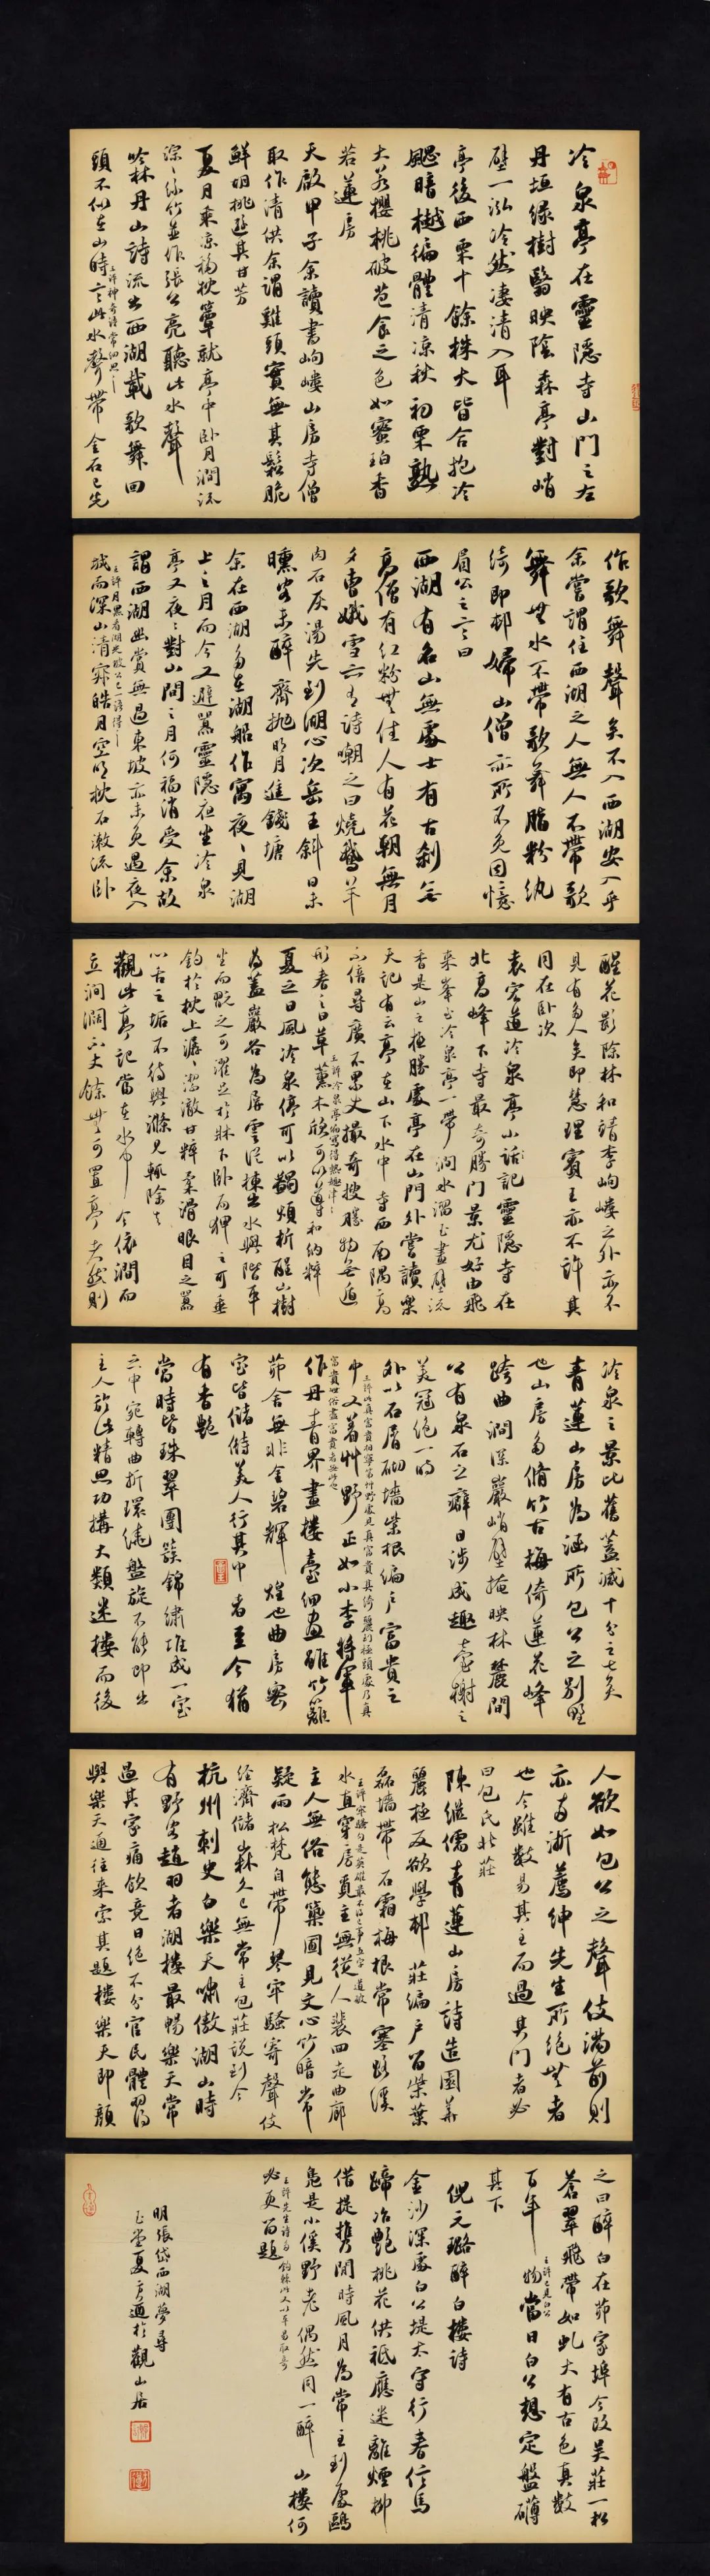 冷泉亭在靈隱寺山門之左
丹垣綠樹翳映陰森亭對峭
壁一泓泠然淒清入耳
亭後西栗十餘株大皆合抱冷
颸暗樾徧體清凉秋初栗熟
大若櫻桃破苞食之色如蜜珀香
若蓮房
天啟甲子余讀書岣嶁山房寺僧
取作清供余謂雞頭實無其鬆脆
鮮胡桃遜其甘芳
夏月乘凉移枕簟就亭中臥月澗流
淙淙絲竹並作張公亮聽此水聲
吟林丹山詩流出西湖載歌舞回
頭不似在山時言此水聲帶金石已先
作歌舞聲矣不入西湖安入乎
余嘗謂住西湖之人無人不帶歌
舞無水不帶歌舞脂粉紈
綺即邨婦山僧亦所不免因憶
眉公之言曰
西湖有名山無處士有古剎無
高僧有紅粉無佳人有花朝無月
夕曹娥雪亦有詩嘲之曰燒鵝羊
肉石灰湯先到湖心次岳王斜日未
曛客未醉齊拋明月進錢塘
余在西湖多在湖船作寓夜夜見湖
上之月而今又避嚣靈隱夜坐冷泉
亭又夜夜對山間之月何福消受余故
謂西湖幽賞無過東坡亦未免遇夜入
城而深山清寂皓月空明枕石漱流臥
醒花影除林和靖李岣嶁之外亦不
見有多人矣即慧理賓王亦不許其
同在臥次
袁宏道冷泉亭小話記靈隱寺在
北高峰下寺最奇勝門景尤好由飛
來峯至冷泉亭一帶澗水溜玉畫壁流
香是山之極勝處亭在山門外嘗讀樂
天記有云亭在山下水中寺西南隅高
不倍尋廣不累丈撮奇搜勝物無遁
形春之日草薰木欣可以導和納粹
夏之日風泠泉渟可以蠲煩析酲山樹
為蓋巖谷為屏雲從棟出水與階平
坐而翫之可濯足於牀下臥而狎之可垂
釣於枕上潺潺潔澈甘粹柔滑眼目之嚣
心舌之垢不待盥滌見輒除去
觀此亭記當在水中今依澗而
立澗濶不丈餘無可置亭者然則
冷泉之景比舊蓋減十分之七矣
青蓮山房為涵所包公之別墅
也山房多脩竹古梅倚蓮花峰
跨曲澗深巖峭壁掩映林麓間
公有泉石之癖日涉成趣臺榭之
美冠絶一時
外以石屑砌墻柴根編戶富貴之
中又著艸野正如小李將軍
作丹青界畫樓臺細畫雖竹籬
茆舍無非金碧輝煌也曲房密
室皆儲偫美人行其中者至今猶
有香艷
當時皆珠翠團簇錦繡堆成一室
之中宛轉曲折環繞盤旋不能即出
主人於此精思巧構大類迷樓而後
人欲如包公之聲伎滿前則
亦兩浙薦紳先生所絶無者
也今雖數易其主而過其門者必
曰包氏北莊
陳繼儒青蓮山房詩造園華
麗極反欲學邨莊編戶留柴葉
磊墻帶石霜梅根常塞路溪
水直穿房覓主無從人裴回走曲廊
主人無俗態築圃見文心竹暗常
疑雨松梵自帶琴牢騷寄聲伎
經濟儲山森久已無常主包莊說到今
杭州刺史白樂天嘯傲湖山時
有野客趙羽者湖樓最暢樂天常
過其家痛飲竟日絶不分官民體羽得
與樂天通往來索其題樓樂天即顏
之曰醉白在茆家埠今改吴莊一松
蒼翠飛帶如虬大有古色真數
百年物當日白公想定盤礴
其下
倪元璐醉白樓詩
金沙深處白公堤太守行春信馬
蹄冶艷桃花供祇應迷離煙柳
借提携閒時風月為常主到處鷗
鳧是小傒野老偶然同一醉山樓何
必更留題
明張岱西湖夢尋